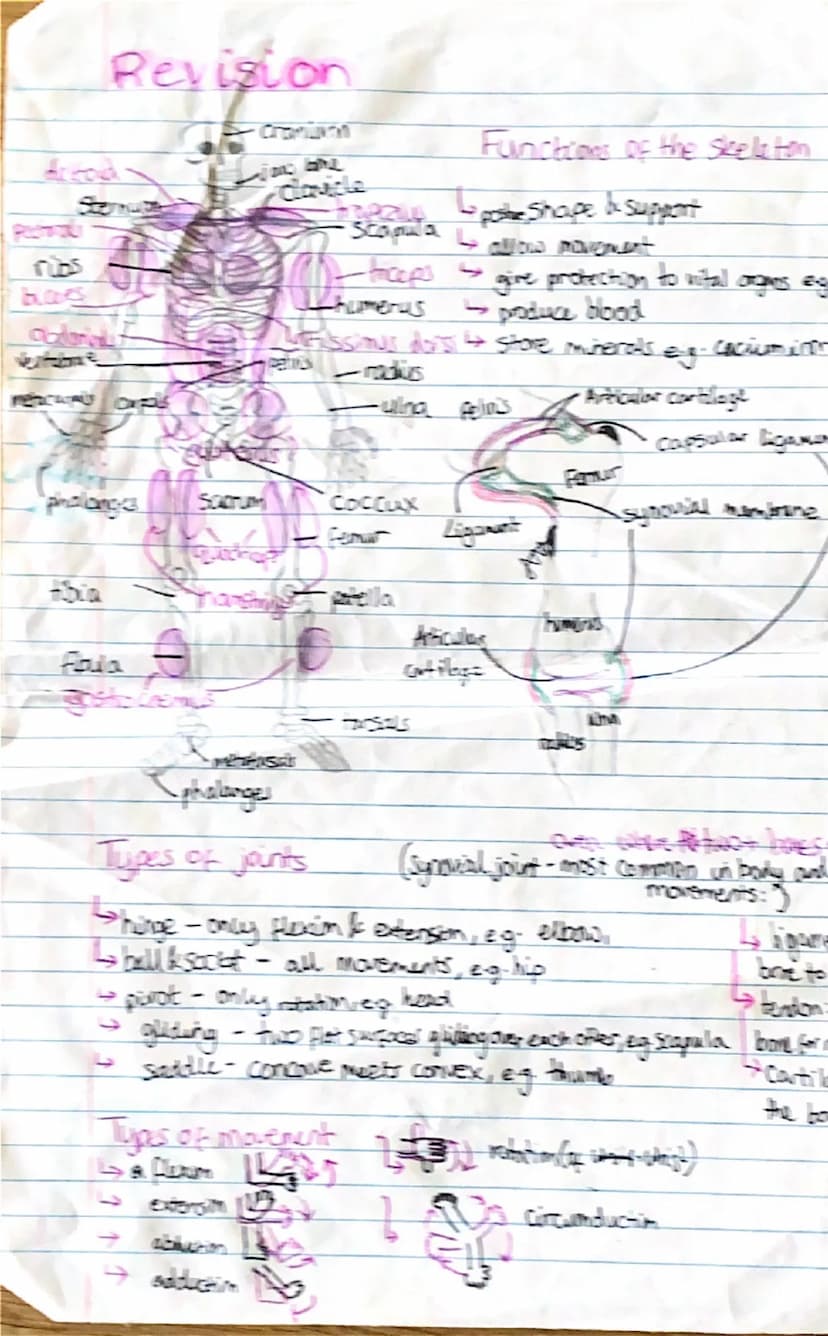 Revision
cranium
jaw bone
clavicle
deltoid
sternum
trapezius
scapula
ribs
triceps
humerus
latissimus dorsi
abdominal
vertebrae
pelvis
radius
metacarpals carpals
ulna
phalanges
sacrum
coccux
femur
tibia
hamstrings
patella
fibula
tarsals
metatarsals
phalanges
Functions of the skeleton
↳ shape & support
↳ allow movement
↳ give protection to vital organs eg
↳ produce blood
↳ store minerals e.g-
pelvis
Articular cartilage
capsular ligament
Femur
synovial membrane
Ligament
humerus
Articular
cartilage
ulna
radius
Types of joints
(synovial joint - most common in body and
movements:)
↳ hinge - only flexion & extension, e.g- elbow,
↳ ball & socket - all movements, e.g-hip
↳ pivot - only rotation e.g. head
↳ gliding - two flat surfaces gliding over each other, e.g scapula
↳ saddle - concave meets convex, e.g- thumb
↳ ligame
bone to
↳ tendon
bone for
↳ Cartil
the bo
Types of movement
↳ flexion
↳ extension
→ abduction
→ adduction
rotation
circumduction